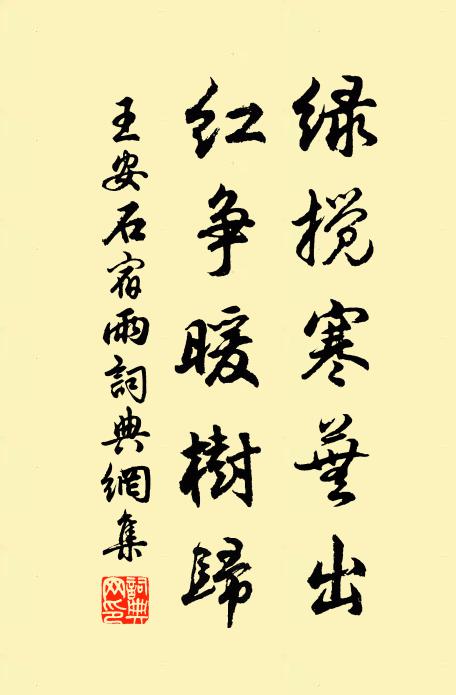 绿搅寒芜出
红争暖树归
王安石宿雨詞典網集
詞典网印